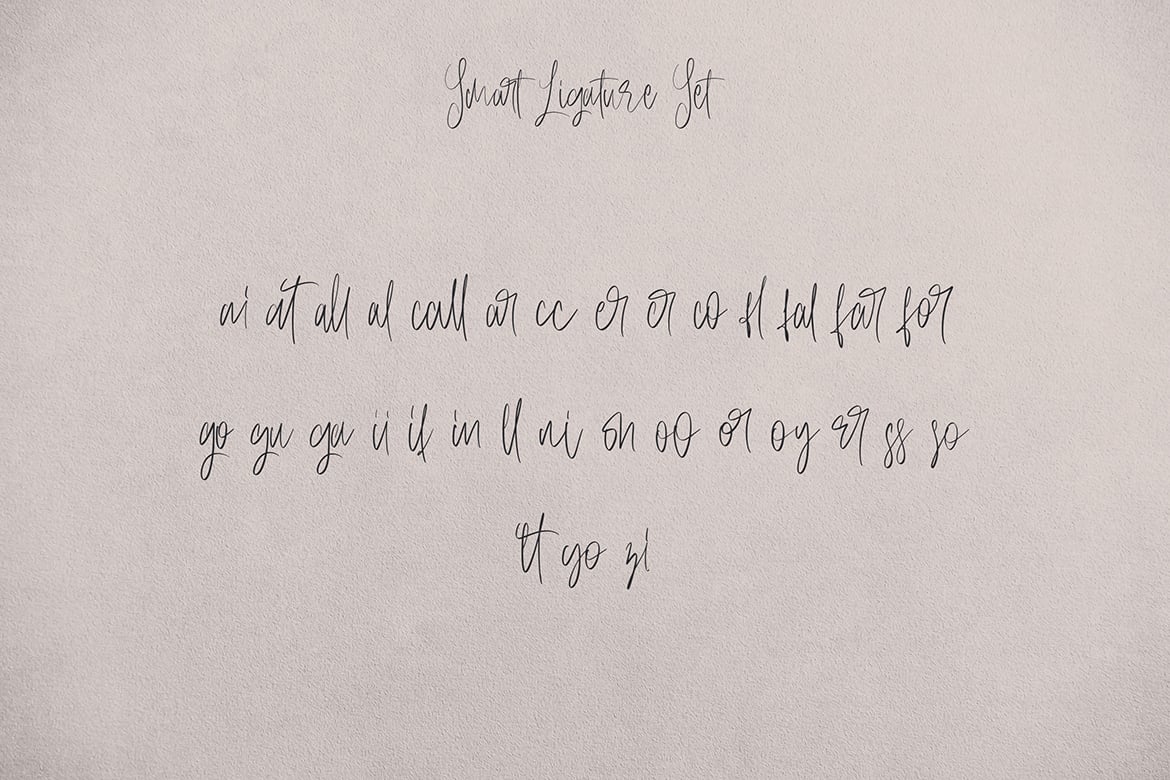 Smart Ligature Set
ai at all al call ar cc er er co fl fal far for
go gu ga ii if in ll ni on oo or oy rr ss so
tt yo zi